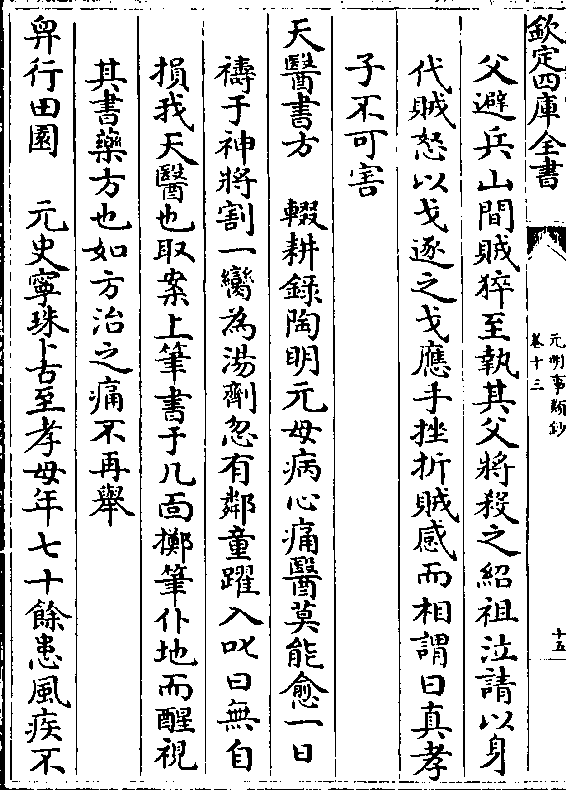 欽定四庫全書
元明事類鈔
卷十三
十五
父避兵山間賊猝至執其父將殺之紹祖泣請以身
代賊怒以戈逐之戈應手挫折賊感而相謂曰真孝
子不可害
天醫書方　輟耕錄陶明元母病心痛醫莫能愈一日
禱于神將割一臠為湯劑忽有鄰童躍入叱曰無自
損我天醫也取案上筆書于几面擲筆仆地而醒視
其書藥方也如方治之痛不再舉
舁行田園　元史寧珠卜古至孝母年七十餘患風疾不